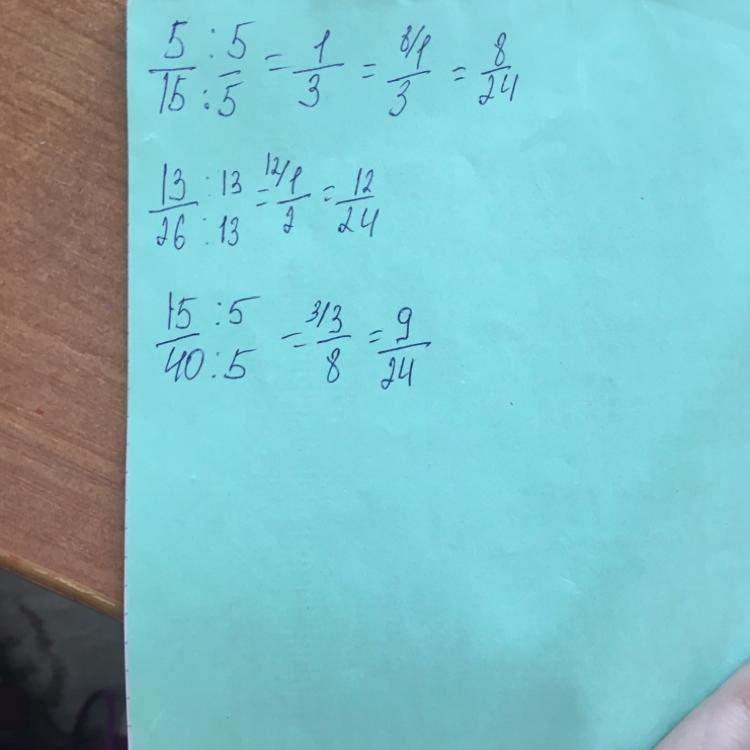 5:5/15:5 = 1/3 = 8/1/3 = 8/24
13:13/26:13 = 12/1/2 = 12/24
15:5/40:5 = 3/3/8 = 9/24